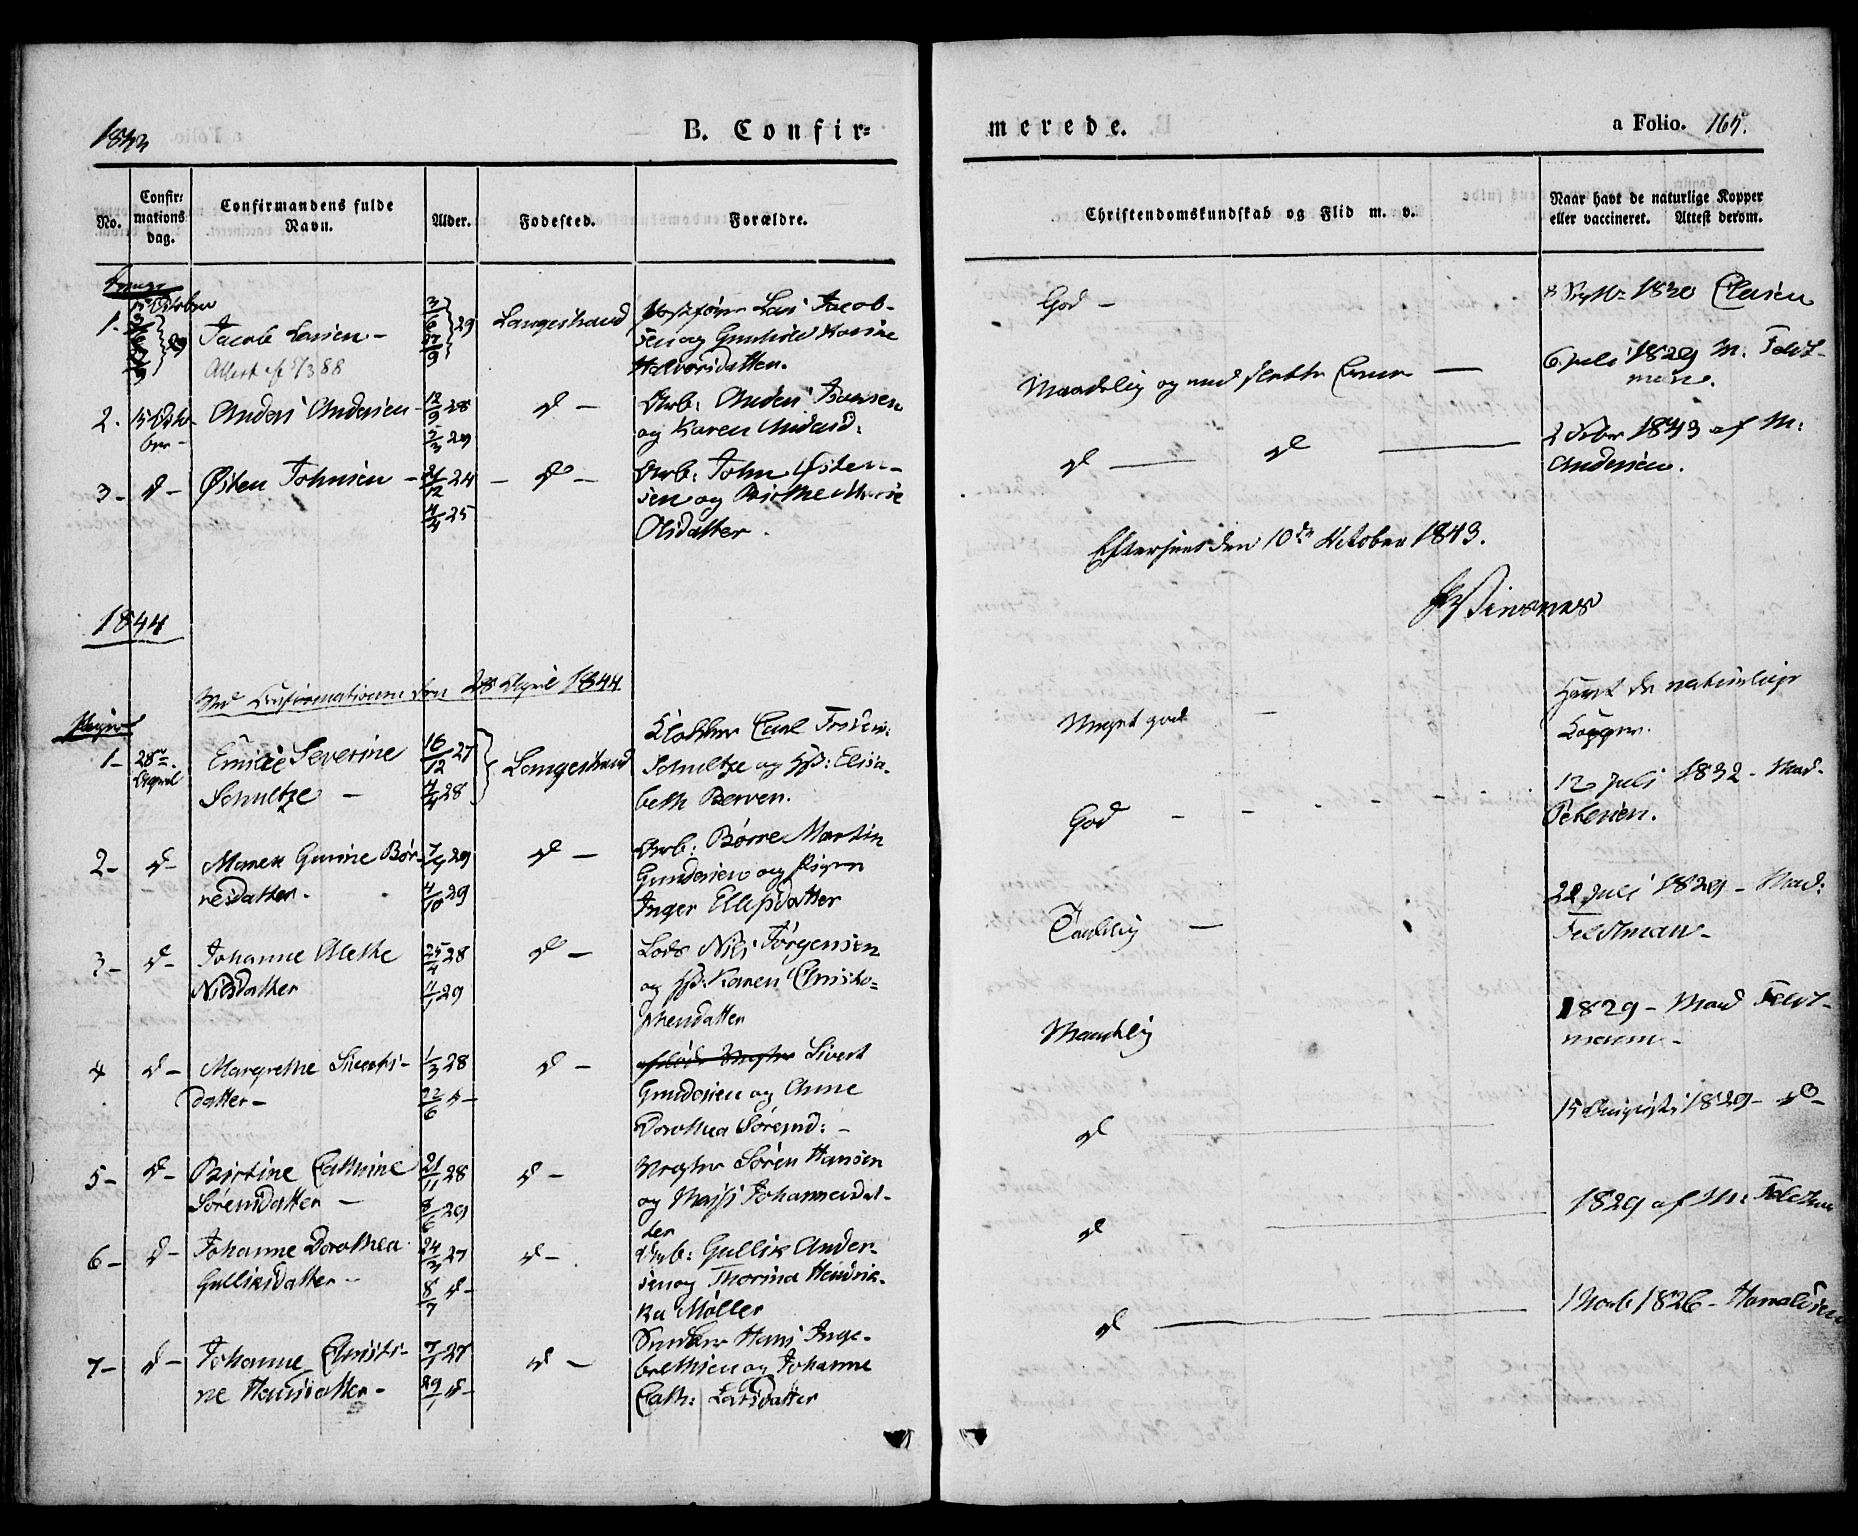 1843
B. Confir=
merede.
a Folio. 165.
No.
Confir=
mations
dag.
Confirmandens fulde
Navn.
Alder.
Fødested.
Forældre.
Christendomskundskab og Flid m. v.
Naar havt de naturlige Kopper
eller vaccineret. Attest derom.
Drenge
1-
Jacob Larsen -
3/6 29
27/9
Langestrand
Lars Jacob-
sen og Gunhild
Halvorsdatter.
God -
1830
2.
15 Octo-
ber -
Anders Andersen -
12/9 28
5/3 29
d -
Arb: Anders Hansen
og Karen
Maadelig og med slette Evner
6 Juli 1829 M. Feldt-
mann.
3-
d -
Østen Johnsen -
21/12 24
4/4 25
- d -
Arb: John Østen-
sen og Birthe Marie
Olsdatter.
d
d
1843 af M:
Andersen.
Efterseet den 10de October 1843.
1844
Ved Confirmationen den 28 April 1844.
Piger
1-
28de
April
Emilie Severine
Schultze -
16/12 27
4/4 28
Langestrand
Klokker Carl
Schultze og Hst: Elisa-
beth Berven.
Meget god -
Havt de naturlige
Kopper.
2-
d -
Maren Gurine Bør-
resdatter -
7/4 29
4/10 29
d -
Arb: Børre Martin
Gundersen og Pigen
Inger Ellefsdatter
God - -
12 Juli 1832 - Mad.
Petersen.
3-
d -
Johanne Alethe
Nielsdatter
25/4 28
11/1 29
d -
Lods Niels Jørgensen
og Hst: Karen Christo=
phersdatter
Taalelig -
22 Juli 1829 - Mad:
Feldtman -
4
d -
Margrethe Siverts-
datter -
1/3 28
22/6 d -
d -
Sivert
Gundersen og Anne
Dorothea Sørensd: -
Maadelig
1829 - Mad Feldt-
mann -
5-
d -
Birtine Cathrine
Sørensdatter -
21/11 28
8/6 29
d -
Søren Hansen
og Johannesdat-
ter
d
15 August 1829 - do -
6-
d -
Johanne Dorothea
Gulliksdatter -
24/3 27
8/7 d -
d -
Arb: Gullik Ander-
sen og Thorina Hendrik-
ka Møller
d
1829 af M: Feldtman
7-
d -
Johanne Christi-
ne Hansdatter -
7/1 27
29/1 d -
d -
Snedker Hans Inge-
brethsen og Johanne
Cath: Larsdatter
d
1826 -